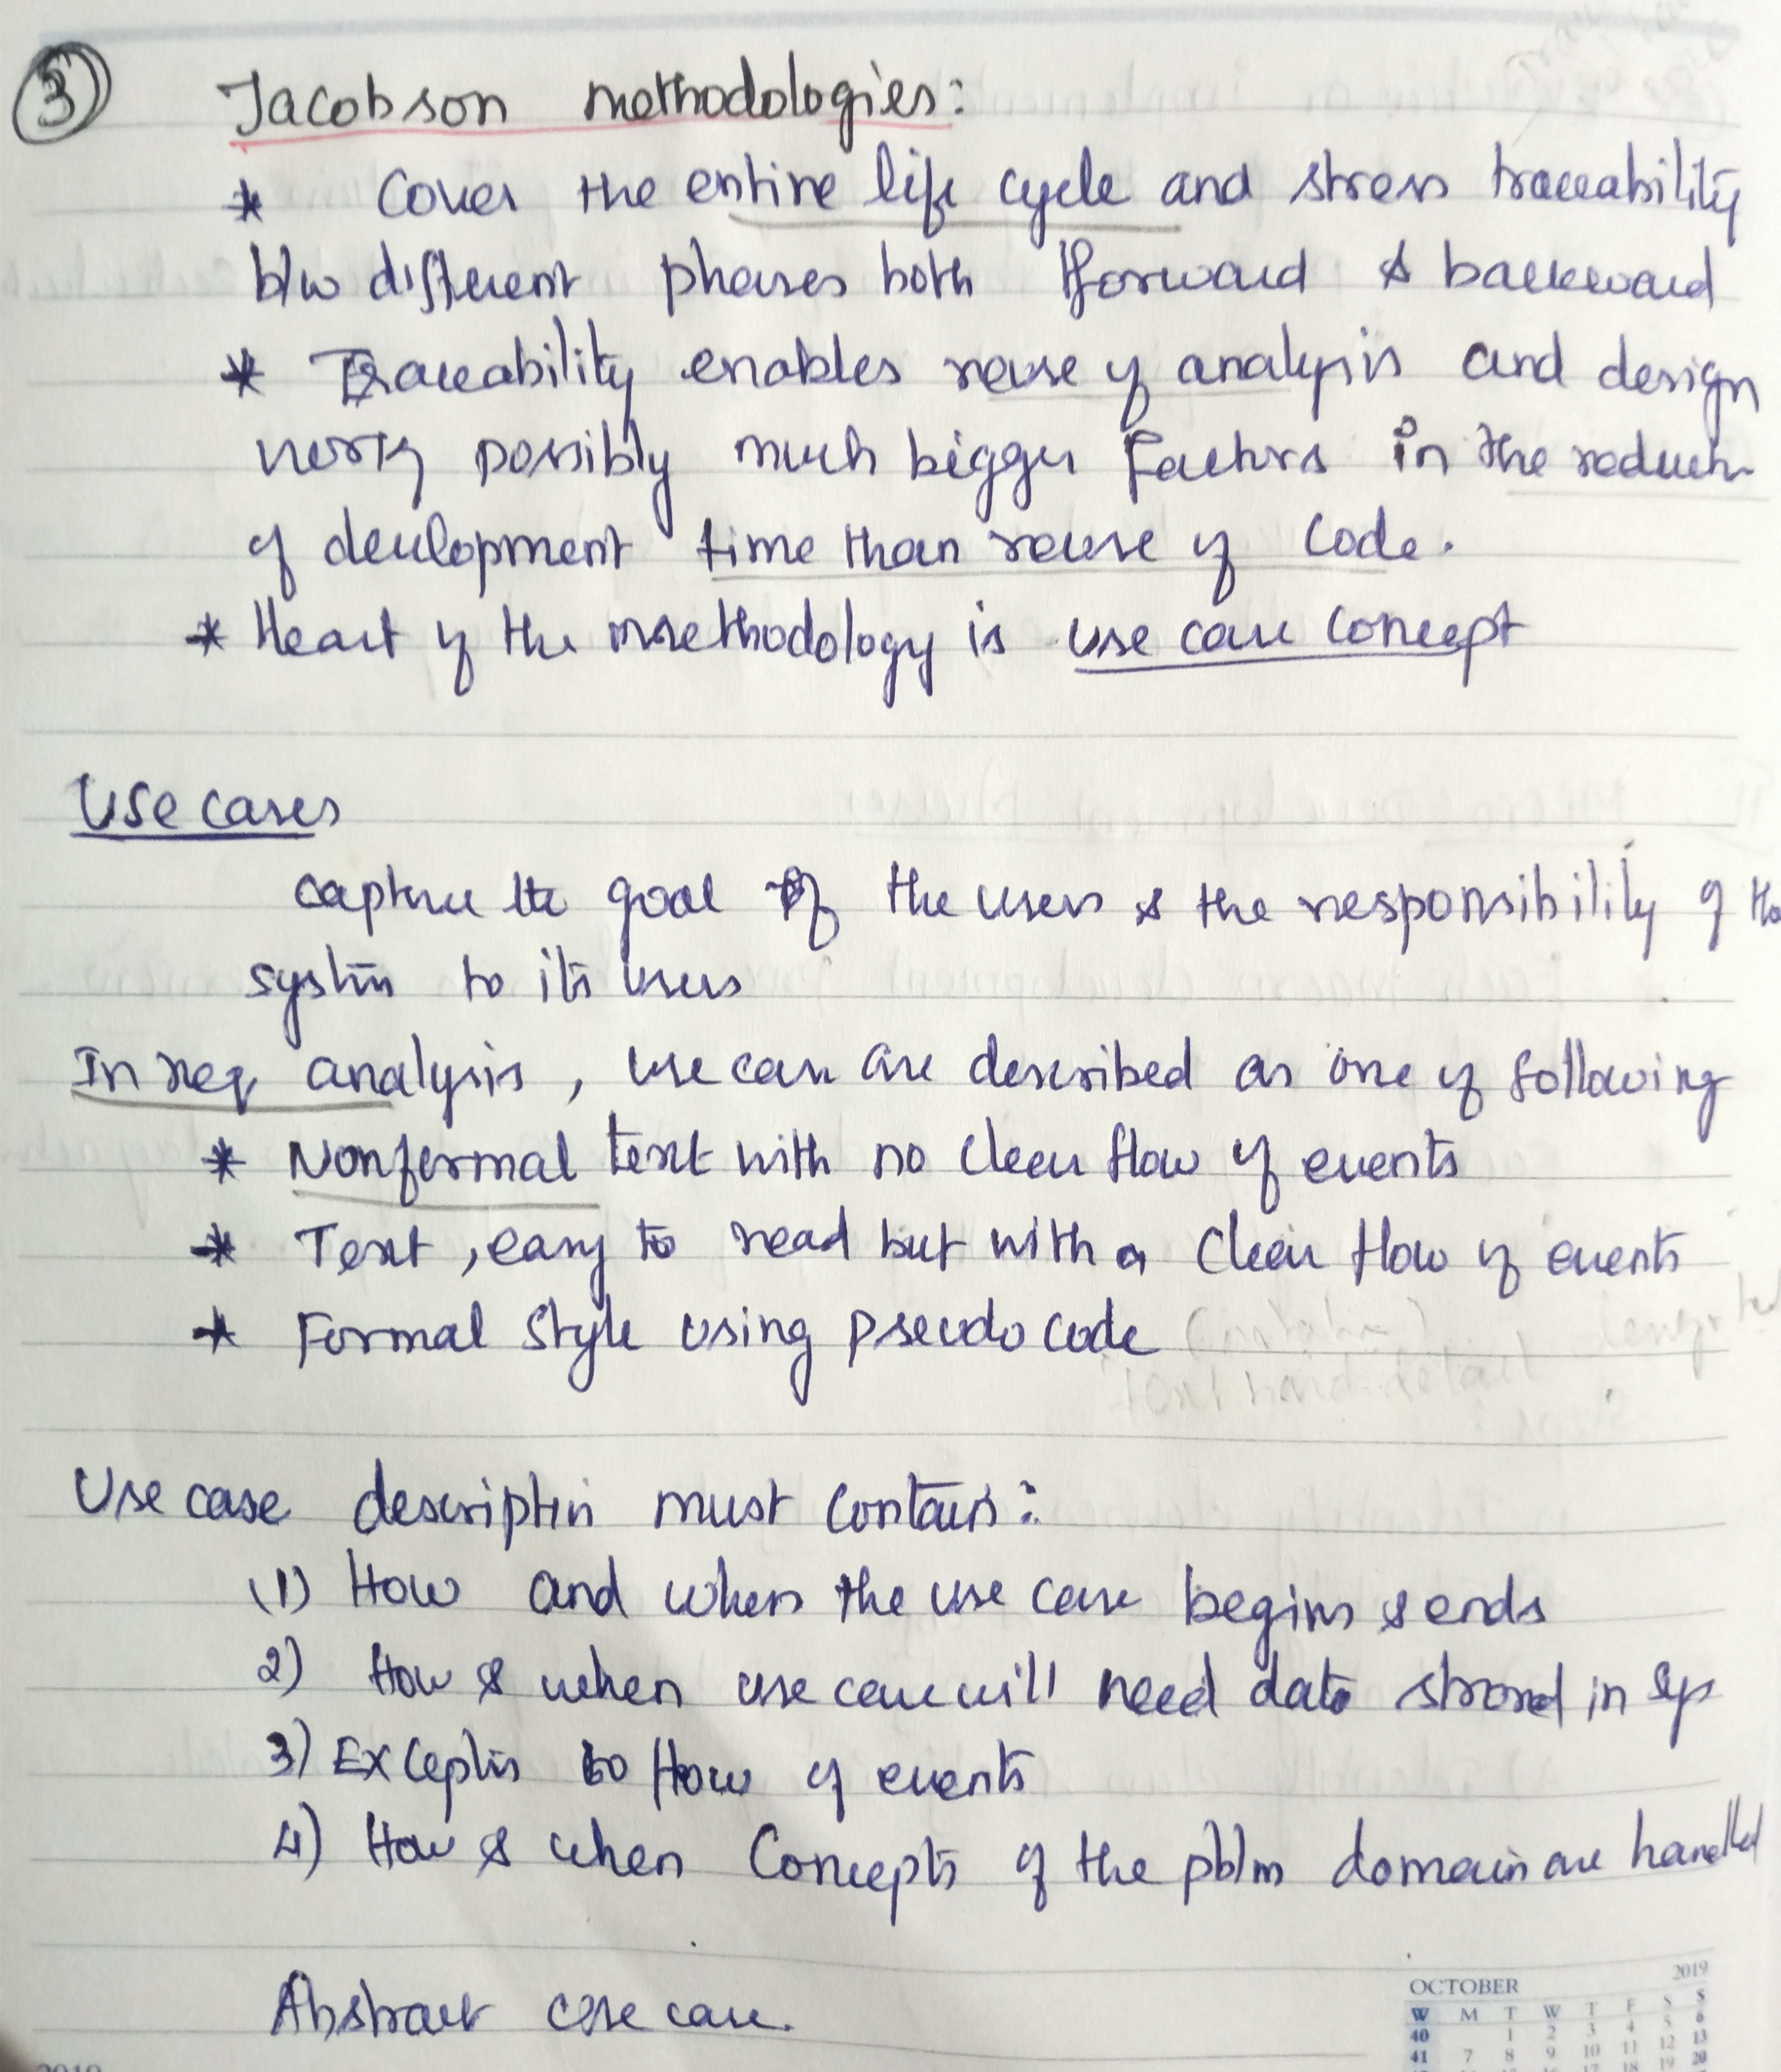 3 Jacobson methodologies:
* Cover the entire life cycle and stress traceability
b/w different phases both forward & backward
* Traceability enables reuse of analysis and design
work possibly much bigger factors in the reductn
of development time than reuse of code.
* Heart of the methodology is use case concept
Use cases
capture the goal of the users & the responsibility of the
system to its users
In req analysis, use case are described as one of following
* Nonformal text with no clear flow of events
* Text, easy to read but with a clear flow of events
* Formal style using pseudo code
Use case descriptin must contain:
(1) How and when the use case begins & ends
2) How & when use case will need data stored in sys
3) Exceptis to flow of events
4) How & when Concepts of the pblm domain are handled
Abstract use case.
OCTOBER 2019
W M T W T F S S
40 1 2 3 4 5 6
41 7 8 9 10 11 12 13
2019